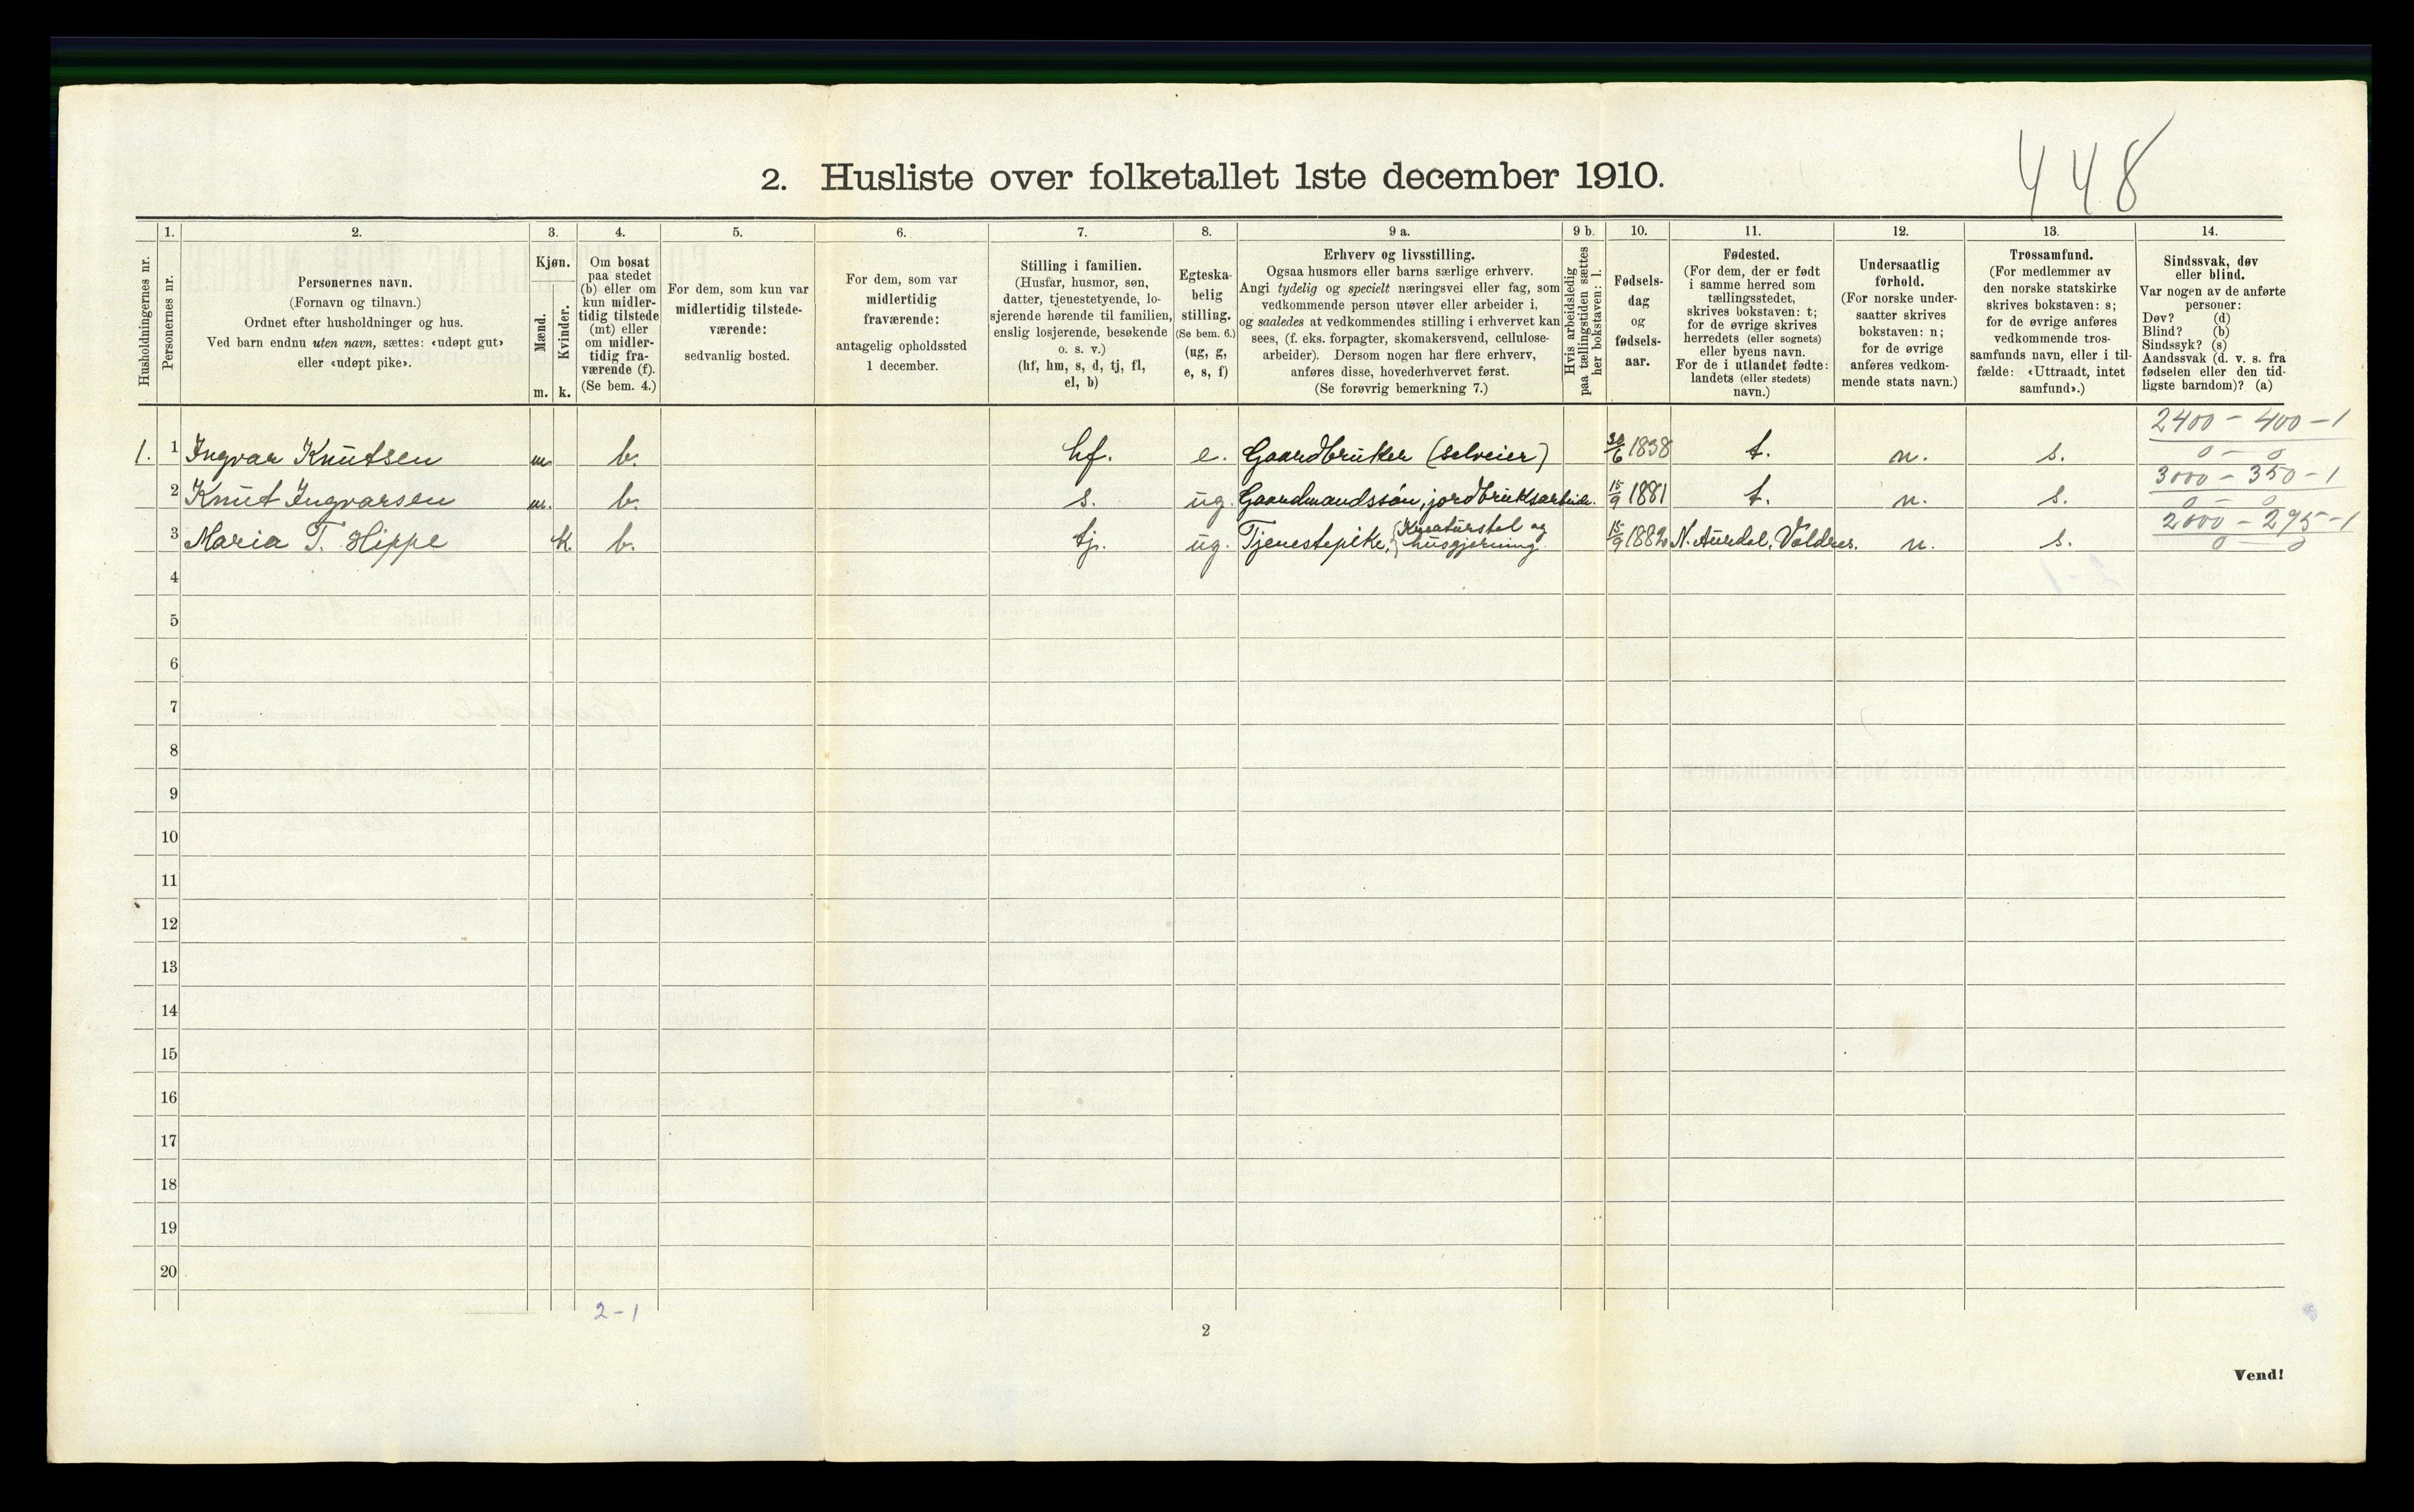 448
2. Husliste over folketallet 1ste december 1910.
Husholdningernes nr.
1.
Personernes nr.
2.
Personernes navn.
(Fornavn og tilnavn.)
Ordnet efter husholdninger og hus.
Ved barn endnu uten navn, sættes: «udøpt gut»
eller «udøpt pike».
3.
Kjøn.
Mænd.
Kvinder.
m. k.
4.
Om bosat
paa stedet
(b) eller om
kun midler-
tidig tilstede
(mt) eller
om midler-
tidig fra-
værende (f).
(Se bem. 4.)
5.
For dem, som kun var
midlertidig tilstede-
værende:
sedvanlig bosted.
6.
For dem, som var
midlertidig
fraværende:
antagelig opholdssted
1 december.
7.
Stilling i familien.
(Husfar, husmor, søn,
datter, tjenestetyende, lo-
sjerende hørende til familien,
enslig losjerende, besøkende
o. s. v.)
(hf, hm, s, d, tj, fl,
el, b)
8.
Egteska-
belig
stilling.
(Se bem. 6.)
(ug, g,
e, s, f)
9 a.
Erhverv og livsstilling.
Ogsaa husmors eller barns særlige erhverv.
Angi tydelig og specielt næringsvei eller fag, som
vedkommende person utøver eller arbeider i,
og saaledes at vedkommendes stilling i erhvervet kan
sees, (f. eks. forpagter, skomakersvend, cellulose-
arbeider). Dersom nogen har flere erhverv,
anføres disse, hovederhvervet først.
(Se forøvrig bemerkning 7.)
9 b.
Hvis arbeidsledig
paa tællingstiden sættes
her bokstaven: l.
10.
Fødsels-
dag
og
fødsels-
aar.
11.
Fødested.
(For dem, der er født
i samme herred som
tællingsstedet,
skrives bokstaven: t;
for de øvrige skrives
herredets (eller sognets)
eller byens navn.
For de i utlandet fødte:
landets (eller stedets)
navn.)
12.
Undersaatlig
forhold.
(For norske under-
saatter skrives
bokstaven: n;
for de øvrige
anføres vedkom-
mende stats navn.)
13.
Trossamfund.
(For medlemmer av
den norske statskirke
skrives bokstaven: s;
for de øvrige anføres
vedkommende tros-
samfunds navn, eller i til-
fælde: «Uttraadt, intet
samfund».)
14.
Sindssvak, døv
eller blind.
Var nogen av de anførte
personer:
Døv? (d)
Blind? (b)
Sindssyk? (s)
Aandssvak (d. v. s. fra
fødselen eller den tid-
ligste barndom)? (a)
2400 - 400 - 1
1. 1 Ingvar Knutsen m. b. hf. e. Gaardbruker (selveier) 30/6 1838 t. n. s. 0 - 0
3000 - 350 - 1
2 Knut Ingvarsen m. b. s. ug. Gaardmandssøn, jordbruksarbeide. 15/9 1881 t. n. s. 0 - 0
2000 - 295 - 1
3 Maria T. Hippe k. b. tj. ug. Tjenestepike, {Kreaturstel og husgjerning. 15/9 1882 N. Aurdal, Valdres. n. s. 0 - 0
4
5
6
7
8
9
10
11
12
13
14
15
16
17
18
19
20
2 - 1
2
Vend!